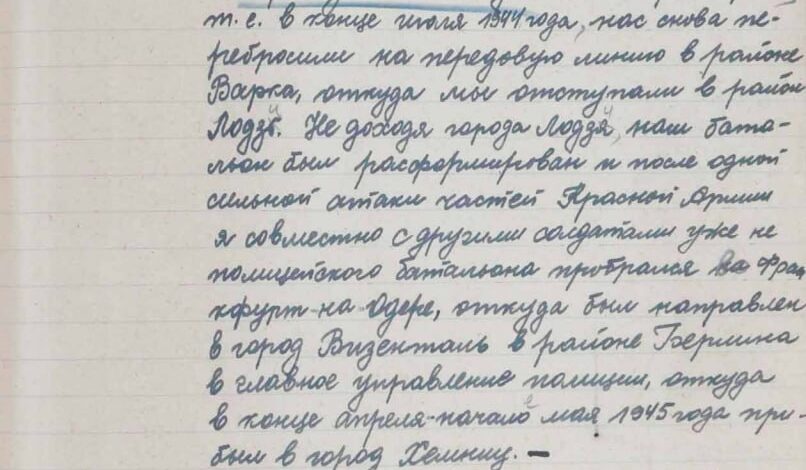 т. е. в конце июля 1944 года, нас снова пе-
ребросили на передовую линию в районе
Варка, откуда мы отступали в район
Лодзь. Не доходя города Лодзя, наш бата-
льон был расформирован и после одной
сильной атаки частей Красной Армии
я совместно с другими солдатами уже не
полицейского батальона пробрался во Фран
кфурт-на Одере, откуда был направлен
в город Визенталь в районе Берлина
в главное управление полиции, откуда
в конце апреля-начале мая 1945 года при-
был в город Хемниц. —